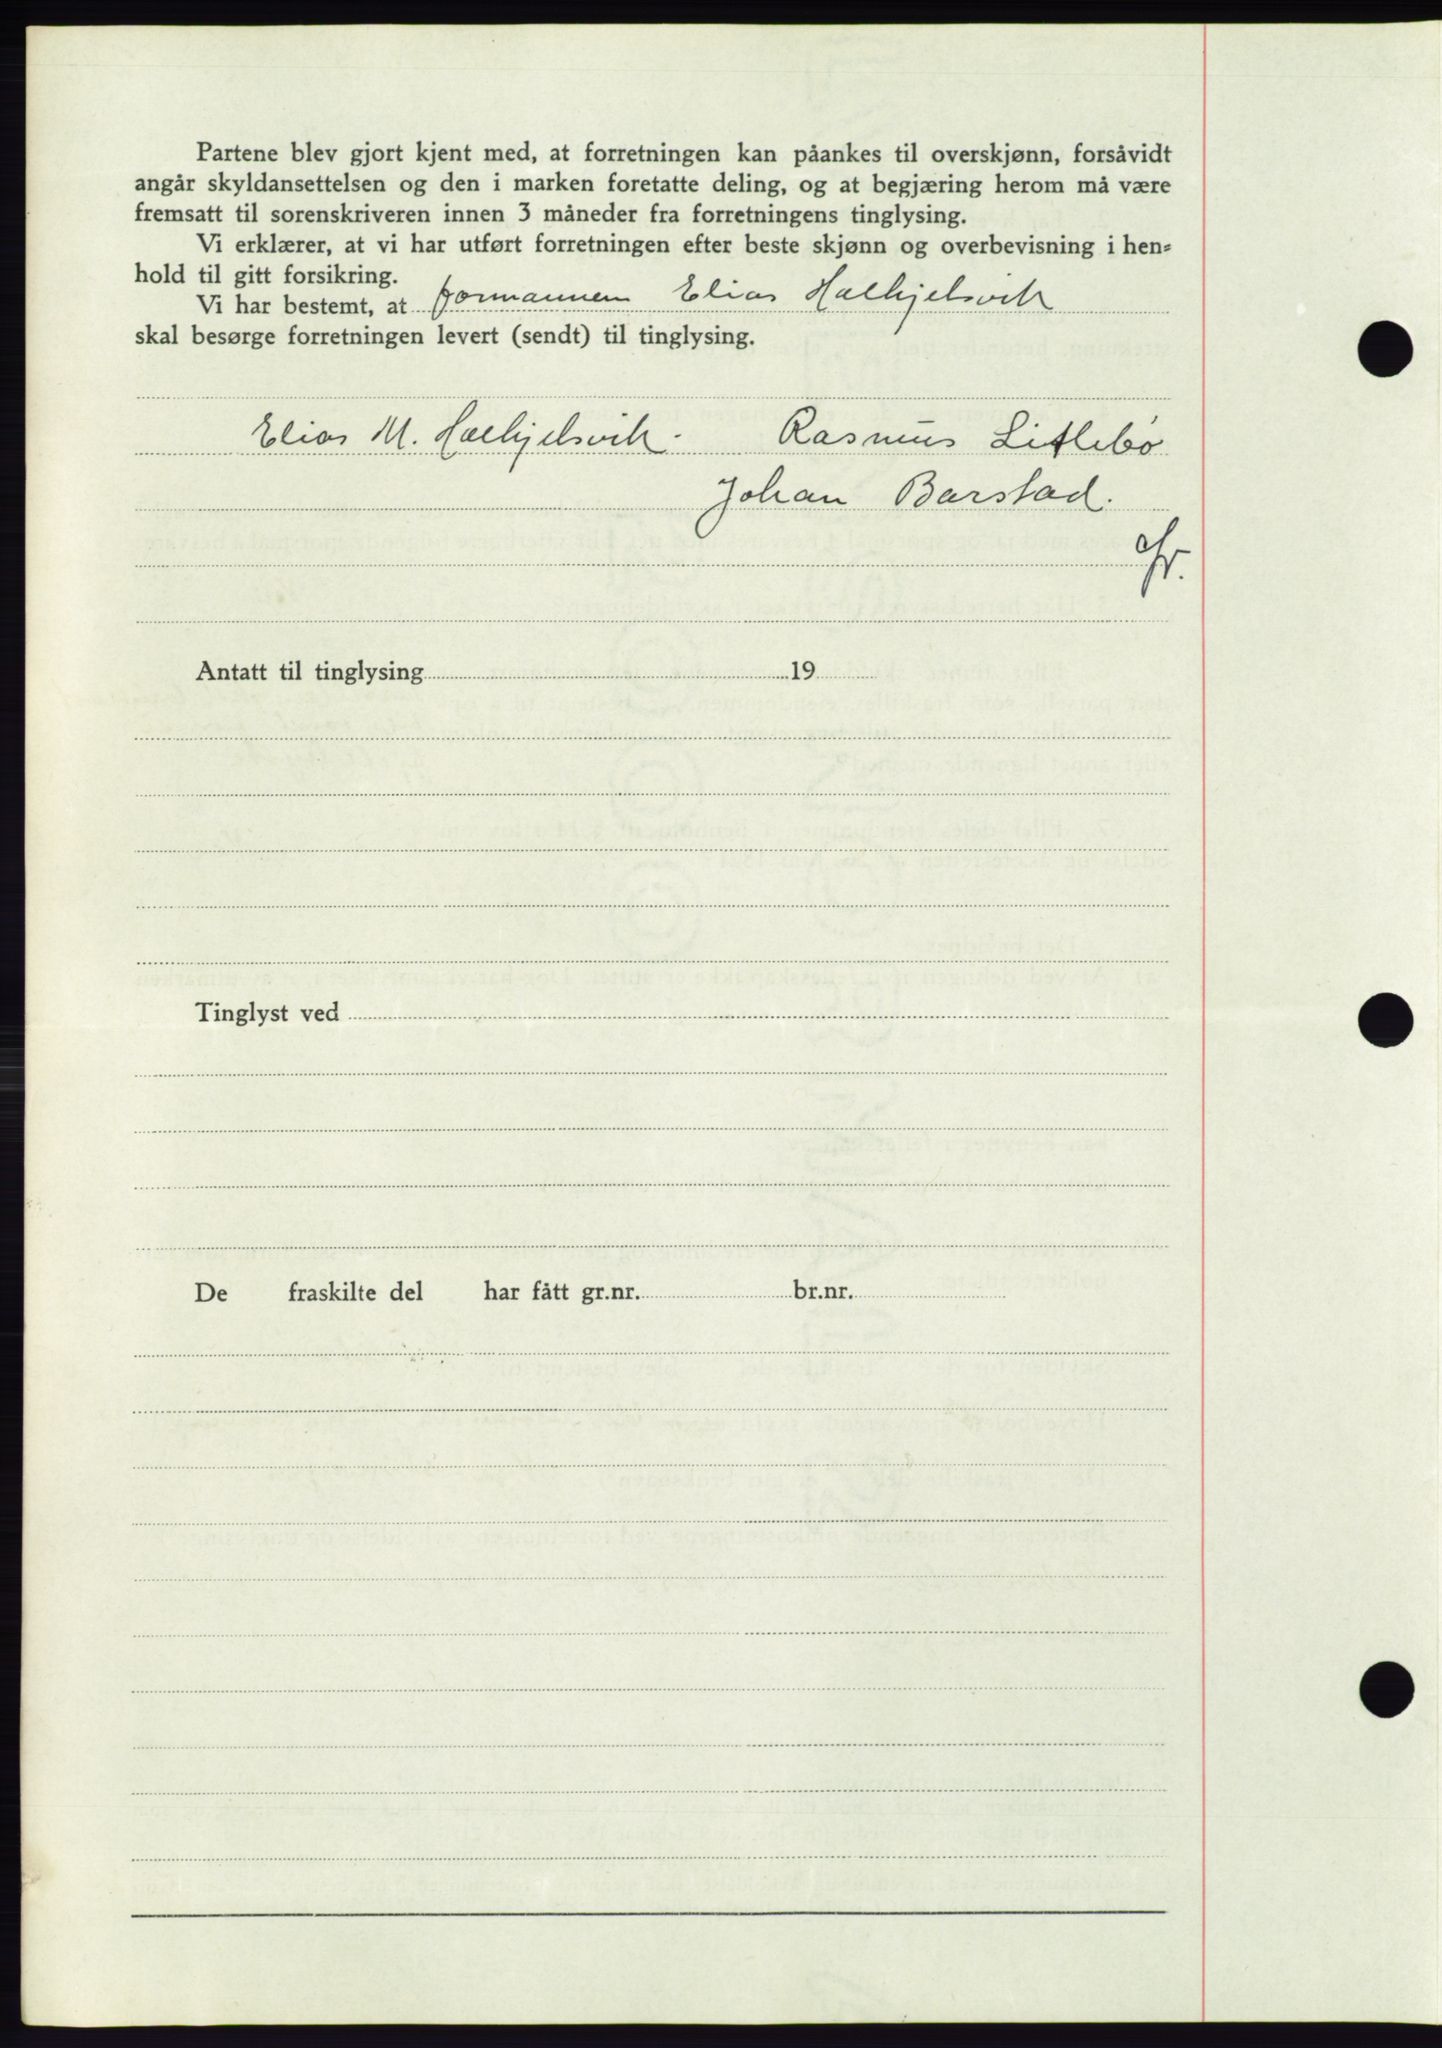 Partene blev gjort kjent med, at forretningen kan påankes til overskjønn, forsåvidt
angår skyldansettelsen og den i marken foretatte deling, og at begjæring herom må være
fremsatt til sorenskriveren innen 3 måneder fra forretningens tinglysing.
Vi erklærer, at vi har utført forretningen efter beste skjønn og overbevisning i hen-
hold til gitt forsikring.
Vi har bestemt, at formannen Elias Hallkjelsvik
skal besørge forretningen levert (sendt) til tinglysing.
Elias M. Hallkjelsvik. Rasmus Litlebø
Johan Barstad.
Antatt til tinglysing 19
Tinglyst ved
De fraskilte del har fått gr.nr. br.nr.